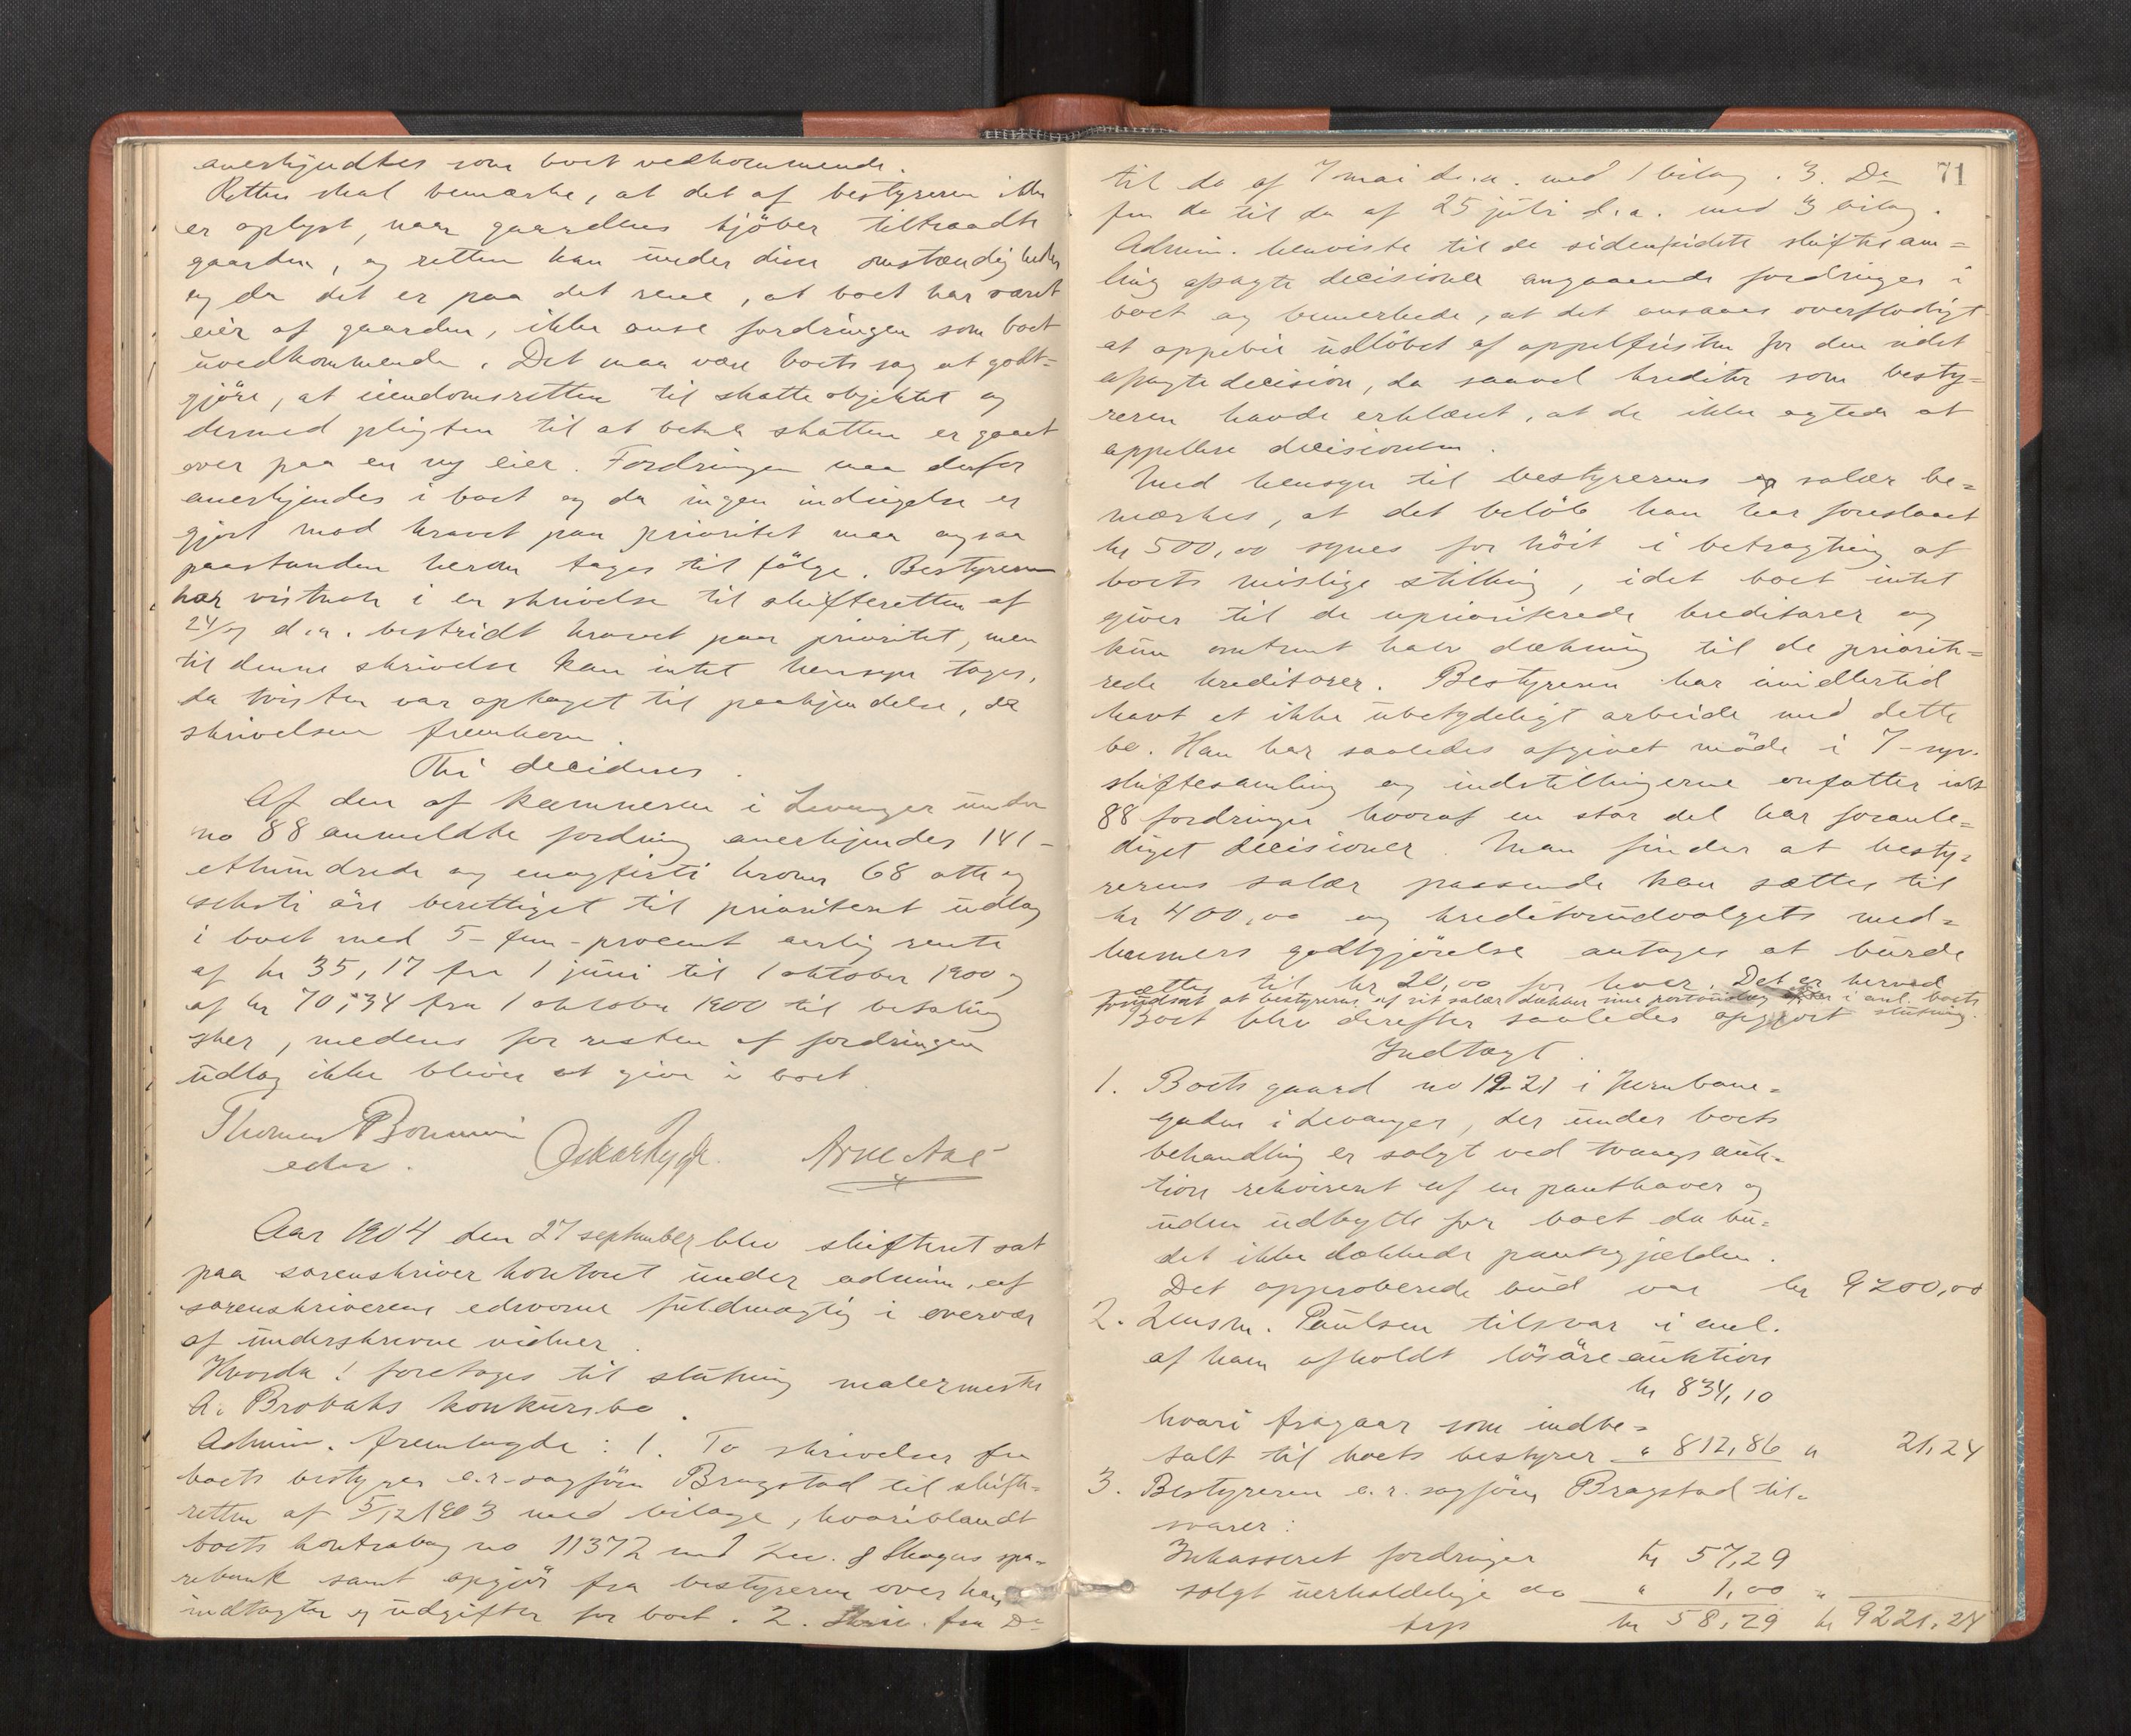 anerkjendtes som boet vedkommende.
Retten skal bemærke, at det af bestyreren ikke
er oplyst, naar gaardens kjöber tiltraadte
gaarden, og retten kan under disse omstændigheder
og da det er paa det rene, at boet har været
eier af gaarden, ikke anse fordringen som boet
uvedkommende. Det maa være boets sag at godt-
gjöre, at eiendomsretten til skatteobjektet og
dermed pligten til at betale skatten er gaaet
over paa en ny eier. Fordringen maa derfor
anerkjendes i boet og da ingen indsigelse er
gjort mod kravet paa prioritet maa ogsaa
paastanden herom tages til fölge. Bestyreren
har vistnok i en skrivelse til skifteretten af
24/9 d.a. bestridt kravet paa prioritet, men
til denne skrivelse kan intet hensyn tages,
da tvisten var optaget til paakjendelse, da
skrivelsen fremkom.
Thi decideres.
Af den af kæmneren i Levanger under
no 88 anmeldte fordring anerkjendes 141 -
ethundrede og enogfirti kroner 68 otte og
seksti öre berettiget til prioriteret udlæg
i boet med 5 - fem - procent aarlig rente
af kr 35,17 fra 1 juni til 1 oktober 1900 og
af kr 70,34 fra 1 oktober 1900 til betaling
sker, medens for resten af fordringen
udlæg ikke bliver at give i boet.
Thomas
edsv. Arne Aae
Aar 1904 den 27 september blev skifteret sat
paa sorenskriverkontoret under admin. af
sorenskriverens edsvorne fuldmægtig i overvær
af underskrevne vidner.
Hvorda! foretoges til slutning malermester
A. Brobaks konkursbo.
Admin. fremlagde: 1. To skrivelser fra
boets bestyrer o.r.sagförer Bragstad til skifte-
retten af 5/12 1903 med bilage, hvoriblandt
boets kontrabog no 11372 med Lev. & Skogns spa-
rebank samt opgjör fra bestyreren over hans
indtægter og udgifter for boet. 2. Skriv. fra Do
71
til do af 7 mai d.a. med 1 bilag. 3. Do
fra do til do af 25 juli d.a. med 3 bilag.
Admin. henviste til de i sidste skiftesam=
ling afsagte decisioner angaaende fordringer i
boet og bemerkede, at det ansaaes overflödigt
at oppebie udlöbet af appelfristen for den sidst
afsagte decision, da saavel kreditor som besty=
reren havde erklæret, at de ikke agtede at
appellere decisionen.
Med hensyn til bestyrerens salær be=
mærkes, at det belöb han har foreslaaet
kr 500,00 synes for höit i betragtning af
boets mislige stilling, idet boet intet
giver til de uprioriterede kreditorer og
kun omtrent halv dækning til de priorite=
rede kreditorer. Bestyreren har imidlertid
havt et ikke ubetydeligt arbeide med dette
bo. Han har saaledes afgivet möde i 7 - syv -
skiftesamling og indstillingerne omfatter ialt
88 fordringer hvoraf en stor del har foranle=
diget decisioner. Man finder at besty=
rerens salær passende kan sættes til
kr 400,00 og kreditorudvalgets med=
lemmers godtgjörelse antages at burde
sættes til kr 20,00 for hver. Det er herved
forudsat at bestyreren af sit salær dækker sine portoudlæg i anl. boets
Boet blev derefter saaledes opgjort slutning.
Indtægt.
1. Boets gaard no 19-21 i Jernbane-
gaden i Levanger, der under boets
behandling er solgt ved tvangsauk-
tion rekvireret af en panthaver og
uden udbytte for boet da bu-
det ikke dækkede pantegjælden.
Det approberede bud var kr 9200,00
2. Lensm. Paulsen tilsvar i anl.
af ham afholdt lösöreauktion
kr 834,10
hvori fragaar som indbe=
talt til boets bestyrer " 812,86 " 21,24
3. Bestyreren o.r. sagförer Bragstad til-
svarer:
Inkasseret fordringer kr 57,29
solgt uerholdelige do " 1,00 "
trsp kr 58,29 kr 9221,24